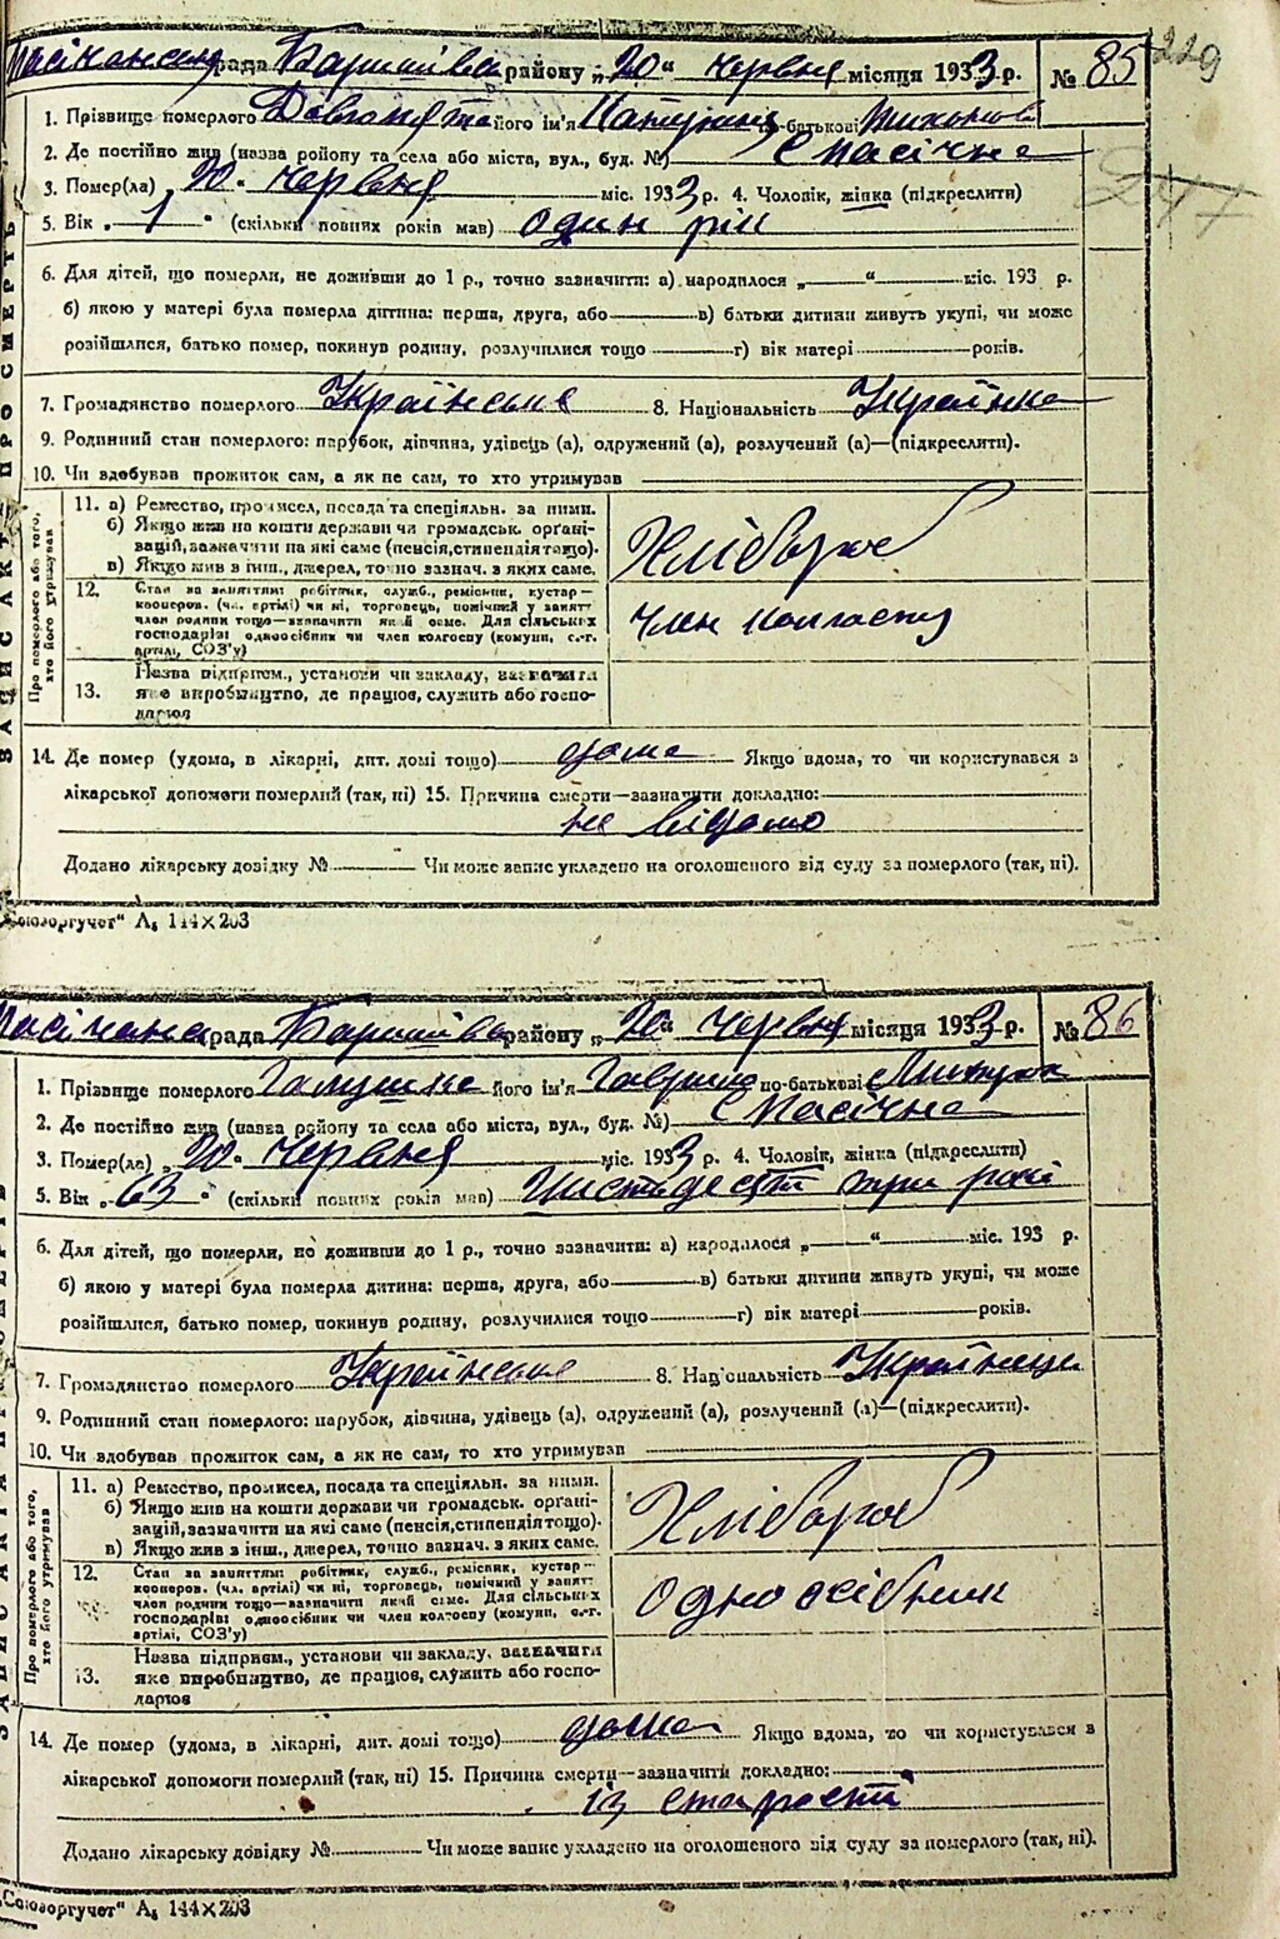 229
рада Баришівсь району „20“ червня місяця 1933 р. № 85
1. Прізвище померлого його ім'я по-батькові
2. Де постійно жив (назва району та села або міста, вул., буд. №) с Пасічна
3. Помер(ла) „20“ червня міс. 1933 р. 4. Чоловік, жінка (підкреслити)
5. Вік „1“ (скільки повних років мав) один рік
6. Для дітей, що померли, не доживши до 1 р., точно зазначити: а) народилося „ “ міс. 193 р.
б) якою у матері була померла дитина: перша, друга, або в) батьки дитини живуть укупі, чи може
розійшлися, батько помер, покинув родину, розлучилися тощо г) вік матері років.
7. Громадянство померлого Українське 8. Національність Українка
9. Родинний стан померлого: парубок, дівчина, удівець (а), одружений (а), розлучений (а)—(підкреслити).
10. Чи здобував прожиток сам, а як не сам, то хто утримував
Про померлого або того, хто його утримував
11. а) Ремество, промисел, посада та спеціяльн. за ними.
б) Якщо жив на кошти держави чи громадськ. орґані-
зацій, зазначити на які саме (пенсія, стипендія тощо).
в) Якщо жив з інш., джерел, точно зазнач. з яких саме.
Хлібороб
12. Стан за заняттям: робітник, служб., ремісник, кустар—
кооперов. (чл. артілі) чи ні, торговець, помічний у занят.
член родини тощо—зазначити який саме. Для сільських
господарів: одноосібник чи член колгоспу (комуни, с.-г.
артілі, СОЗ'у)
член колгоспу
13. Назва підприєм., установи чи закладу, зазначити
яке виробництво, де працює, служить або госпо-
дарює
14. Де помер (удома, в лікарні, дит. домі тощо) дома Якщо вдома, то чи користувався з
лікарської допомоги померлий (так, ні) 15. Причина смерти—зазначити докладно:
не відомо
Додано лікарську довідку № Чи може запис укладено на оголошеного від суду за померлого (так, ні).
„Союзоргучет“ А₅ 144×203
рада Баришівсь району „20“ червня місяця 1933 р. № 86
1. Прізвище померлого Галушка його ім'я Гаврило по-батькові
2. Де постійно жив (назва району та села або міста, вул., буд. №) с Пасічна
3. Помер(ла) „20“ червня міс. 1933 р. 4. Чоловік, жінка (підкреслити)
5. Вік „63“ (скільки повних років мав) шистьдесят три роки
6. Для дітей, що померли, не доживши до 1 р., точно зазначити: а) народилося „ “ міс. 193 р.
б) якою у матері була померла дитина: перша, друга, або в) батьки дитини живуть укупі, чи може
розійшлися, батько помер, покинув родину, розлучилися тощо г) вік матері років.
7. Громадянство померлого Українське 8. Національність Українець
9. Родинний стан померлого: парубок, дівчина, удівець (а), одружений (а), розлучений (а)—(підкреслити).
10. Чи здобував прожиток сам, а як не сам, то хто утримував
Про померлого або того, хто його утримував
11. а) Ремество, промисел, посада та спеціяльн. за ними.
б) Якщо жив на кошти держави чи громадськ. орґані-
зацій, зазначити на які саме (пенсія, стипендія тощо).
в) Якщо жив з інш., джерел, точно зазнач. з яких саме.
Хлібороб
12. Стан за заняттям: робітник, служб., ремісник, кустар—
кооперов. (чл. артілі) чи ні, торговець, помічний у занят.
член родини тощо—зазначити який саме. Для сільських
господарів: одноосібник чи член колгоспу (комуни, с.-г.
артілі, СОЗ'у)
одноосібник
13. Назва підприєм., установи чи закладу, зазначити
яке виробництво, де працює, служить або госпо-
дарює
14. Де помер (удома, в лікарні, дит. домі тощо) дома Якщо вдома, то чи користувався з
лікарської допомоги померлий (так, ні) 15. Причина смерти—зазначити докладно:
із старости
Додано лікарську довідку № Чи може запис укладено на оголошеного від суду за померлого (так, ні).
„Союзоргучет“ А₅ 144×203